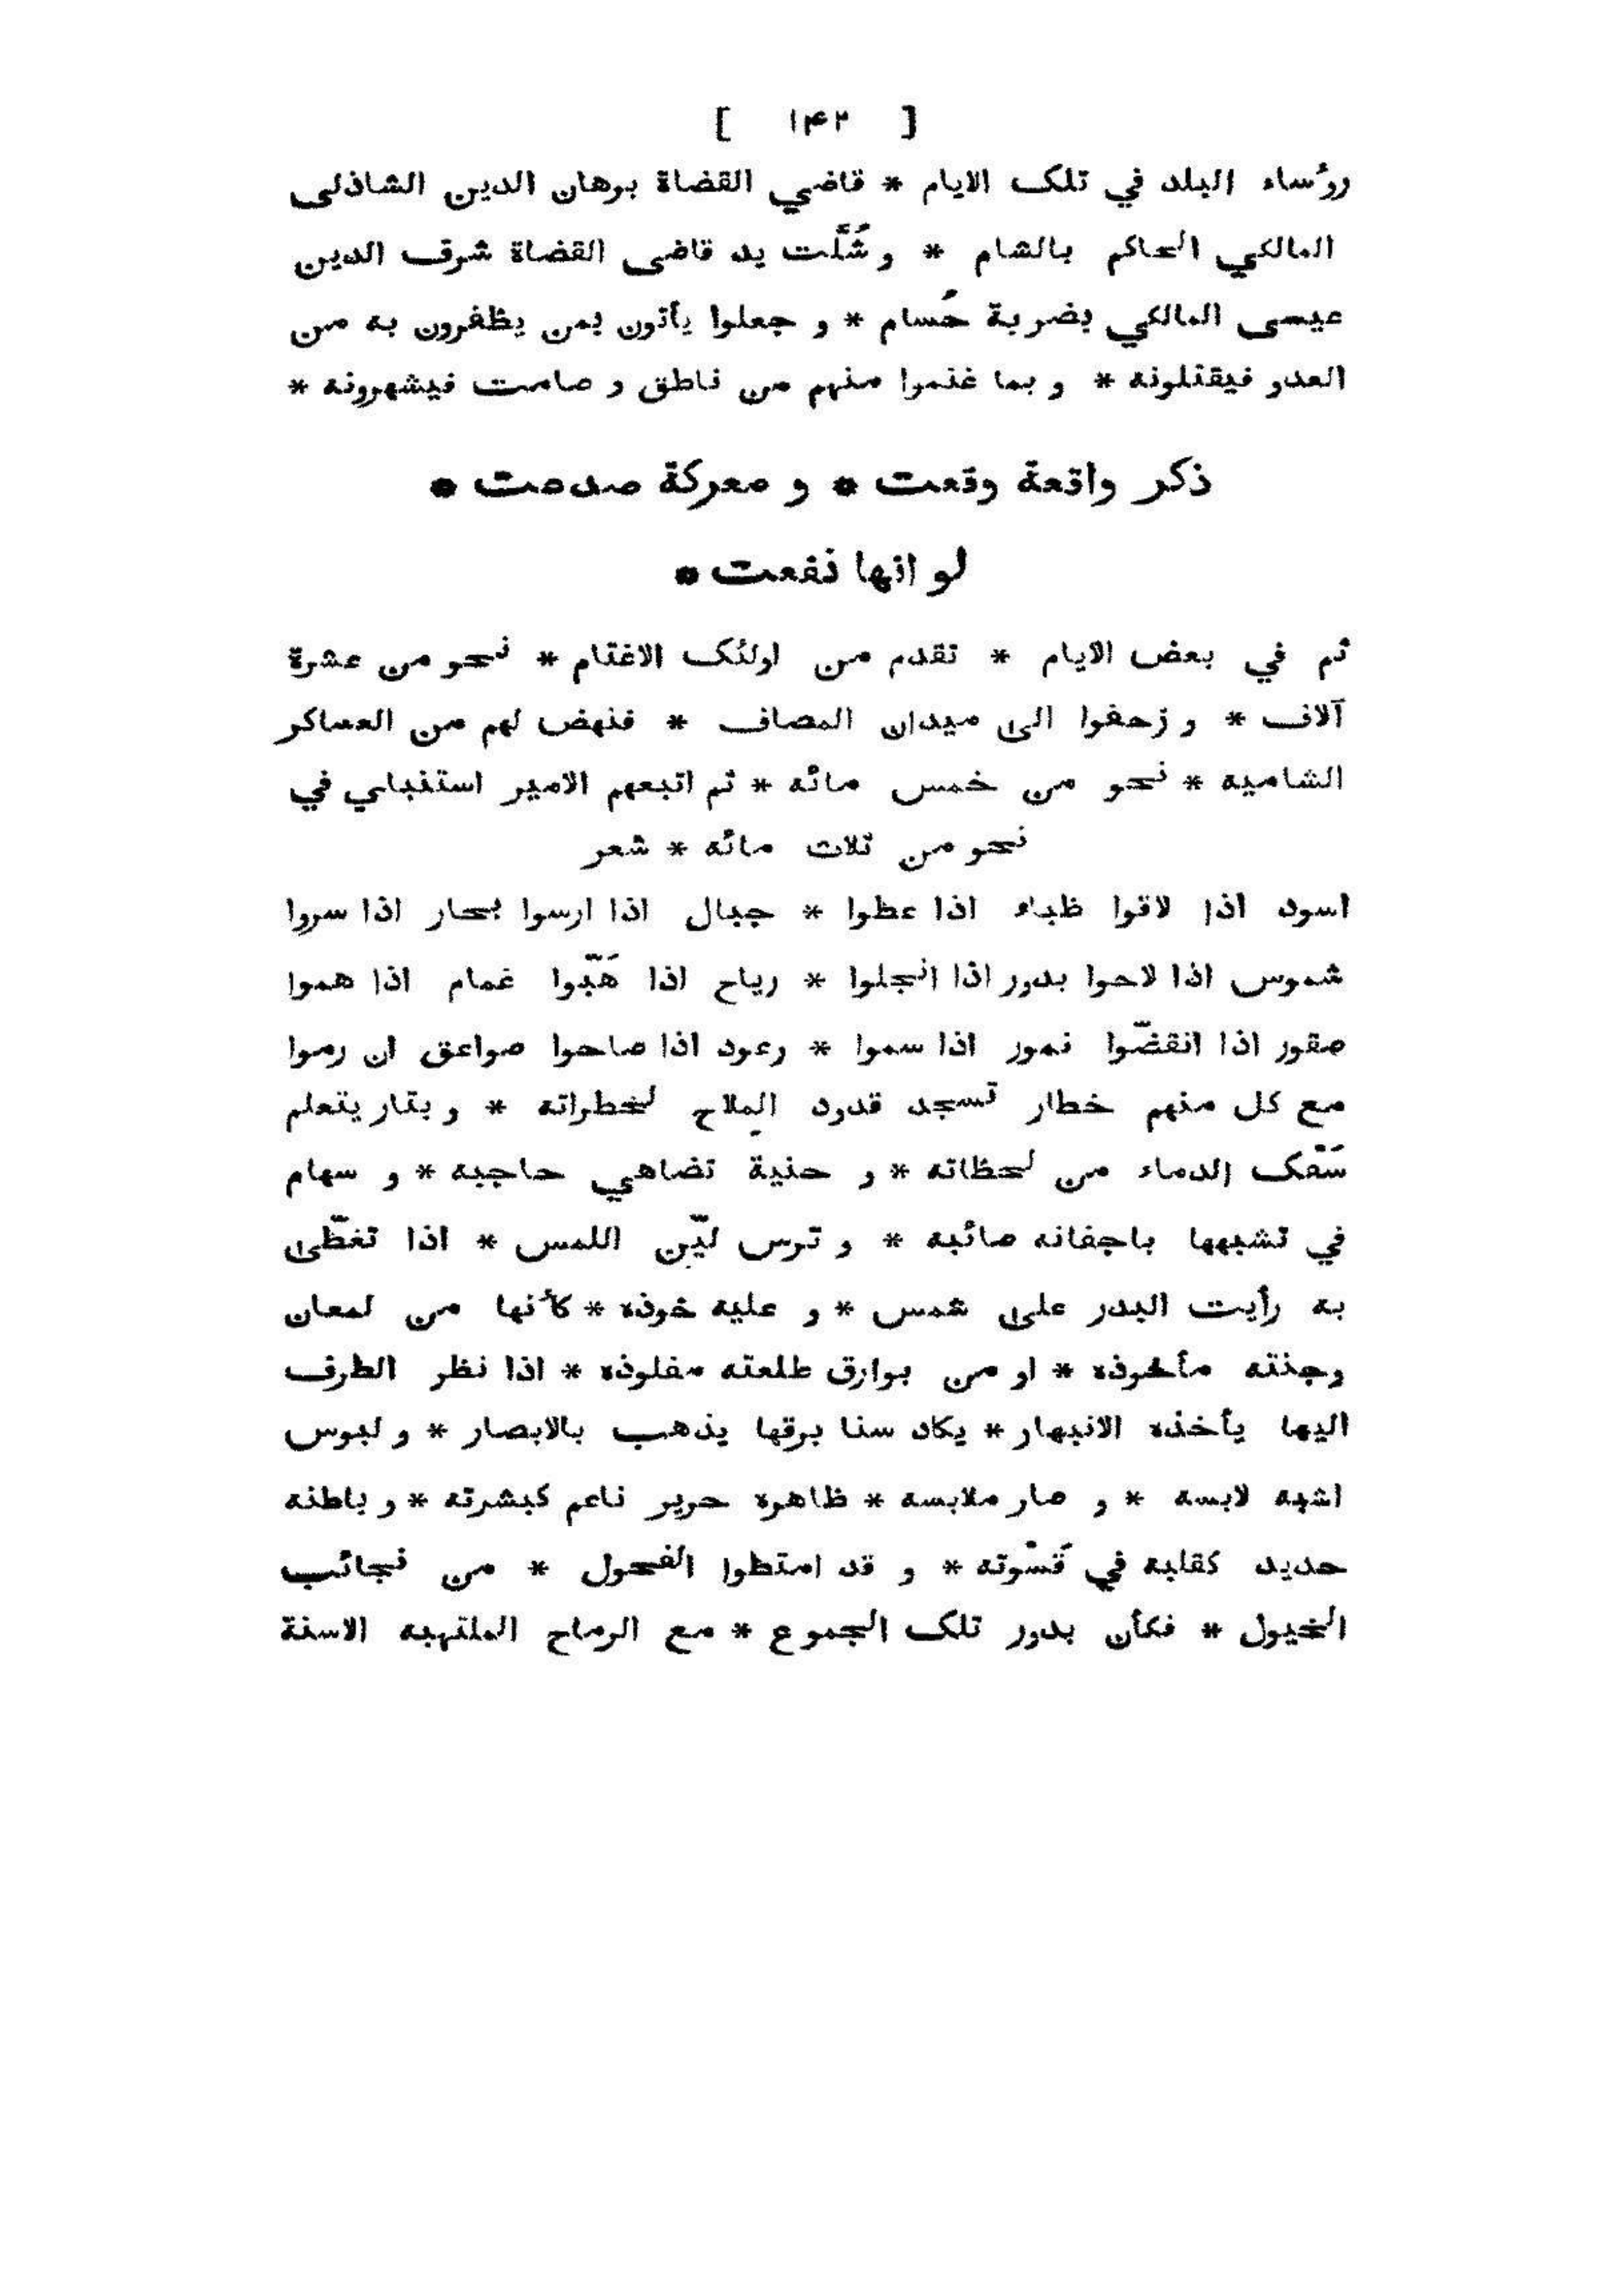 [ ۱۴۲ ]
رؤساء البلد في تلک الایام * قاضي القضاة برهان الدین الشاذلی
المالکي الحاکم بالشام * و شُلَّت ید قاضی القضاة شرف الدین
عیسی المالکي بضربة حُسام * و جعلوا یأتون بمن یظفرون به من
العدو فیقتلونه * و بما غنموا منهم من ناطق و صامت فیشهرونه *
ذکر واقعة وقعت * و معرکة صدمت *
لو انها نفعت *
ثم في بعض الایام * تقدم من اولئک الاغتام * نحو من عشرة
آلاف * و زحفوا الی میدان المصاف * فنهض لهم من العساکر
الشامیه * نحو من خمس مائه * ثم اتبعهم الامیر استنباي في
نحو من ثلاث مائه * شعر
اسود اذا لاقوا ظباء اذا عطوا * جبال اذا ارسوا بحار اذا سروا
شموس اذا لاحوا بدور اذا انجلوا * ریاح اذا هَبّوا غمام اذا هموا
صقور اذا انقضّوا نمور اذا سموا * رعود اذا صاحوا صواعق ان رموا
مع کل منهم خطار تسجد قدود المِلاح لخطراته * و بتار یتعلم
سَفْک الدماء من لحظاته * و حنیة تضاهي حاجبه * و سهام
في تشبهها باجفانه صائبه * و ترس لیّن اللمس * اذا تغطّی
به رأیت البدر علی شمس * و علیه خوذه * کأنها من لمعان
وجنته مأخوذه * او من بوارق طلعته مفلوذه * اذا نظر الطرف
الیها یأخذه الانبهار * یکاد سنا برقها یذهب بالابصار * و لبوس
اشبه لابسه * و صار ملابسه * ظاهره حریر ناعم کبشرته * و باطنه
حدید کقلبه في قَسْوته * و قد امتطوا الفحول * من نجائب
الخیول * فکأن بدور تلک الجموع * مع الرماح الملتهبه الاسنة